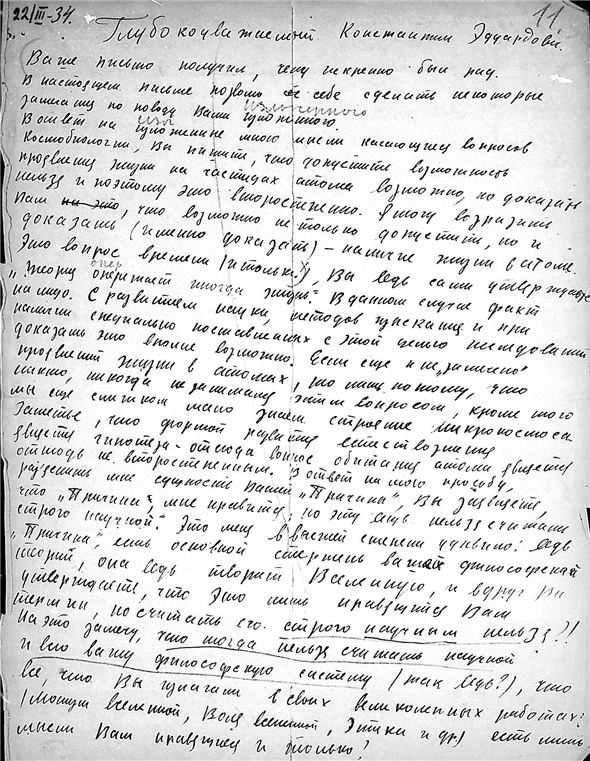 22/III-34.
11
Глубокоуважаемый Константин Эдуардович.
Ваше письмо получил, чему искренно был рад.
В настоящем письме позволю себе сделать некоторые
замечания по поводу Вами изложенного
В ответ на изложенные мною мысли касающиеся вопросов
космобиологии, Вы пишите, что допустить возможность
проявления жизни на частицах атома возможно, но доказать
нельзя и поэтому это второстепенно. Я могу возразить
Вам на это, что возможно не только допустить, но и
доказать (именно доказать) – наличие жизни в атоме.
Это вопрос времени (и только), Вы ведь сами утверждаете
"Теория опережает иногда жизнь". В данном случае факт
на лицо. С развитием науки, методов изыскания и при
наличии специально поставленных с этой целью исследований
доказать это вполне возможно. Если еще и не "замечено"
проявлений жизни в атомах, то лишь потому, что
никто, никогда не занимался этим вопросом, кроме того
мы еще слишком мало знаем строение микрокосмоса.
Заметьте, что формой развития естествознания
является гипотеза – отсюда вопрос обитания атома является
отнюдь не второстепенным. В ответ на мою просьбу,
разъяснить мне сущность Вашей "Причины", Вы заявляете,
что "Причина", мне нравится, но эту нельзя считать
строго научной." Это меня в высшей степени удивило: ведь
"Причина", есть основной стержень вашей философской
теории, она ведь творит Вселенную, и вдруг Вы
утверждаете, что это лишь нравящийся Вам
термин, но считать его строго научным нельзя?!
На это замечу, что тогда нельзя считать научной
и всю вашу философскую систему (так ведь?), что
все, что Вы излагали в своих великолепных работах:
(Монизм вселенной, Воля вселенной, Этика и др) есть лишь
мысли Вам нравящиеся и только!